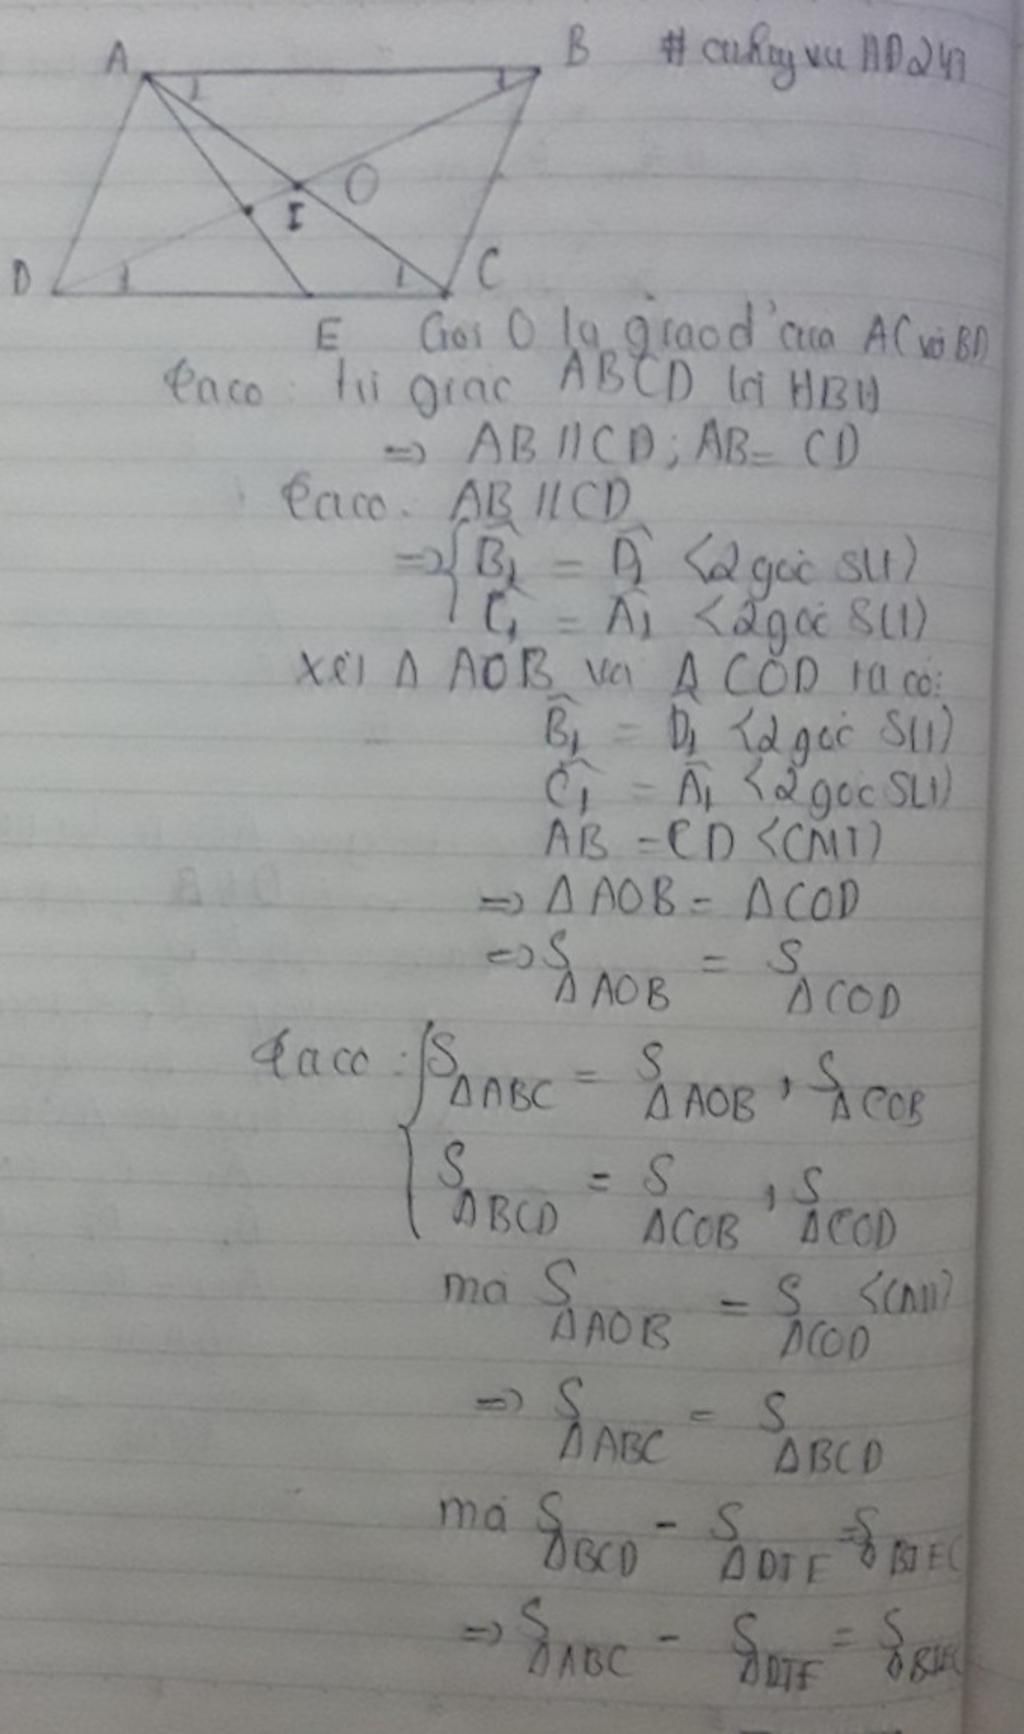 A B # cuhuyvu HD247
O
I
D C
E Gọi O là giaođ' của AC và BD
Taco: tứ giác ABCD là HBH
=> AB // CD ; AB = CD
Taco: AB // CD
=> { B̂1 = D̂1 <2 góc SLT>
Ĉ1 = Â1 <2 góc SLT>
Xét Δ AOB và Δ COD ta có:
B̂1 = D̂1 <2 góc SLT>
Ĉ1 = Â1 <2 góc SLT>
AB = CD <CMT>
=> Δ AOB = Δ COD
=> S Δ AOB = S Δ COD
Taco: { S Δ ABC = S Δ AOB , S Δ COB
S Δ BCD = S Δ COB , S Δ COD
mà S Δ AOB = S Δ COD <CMT>
=> S Δ ABC = S Δ BCD
mà S Δ BCD - S Δ DIE = S BIEC
=> S Δ ABC - S Δ DIE = S BIEC